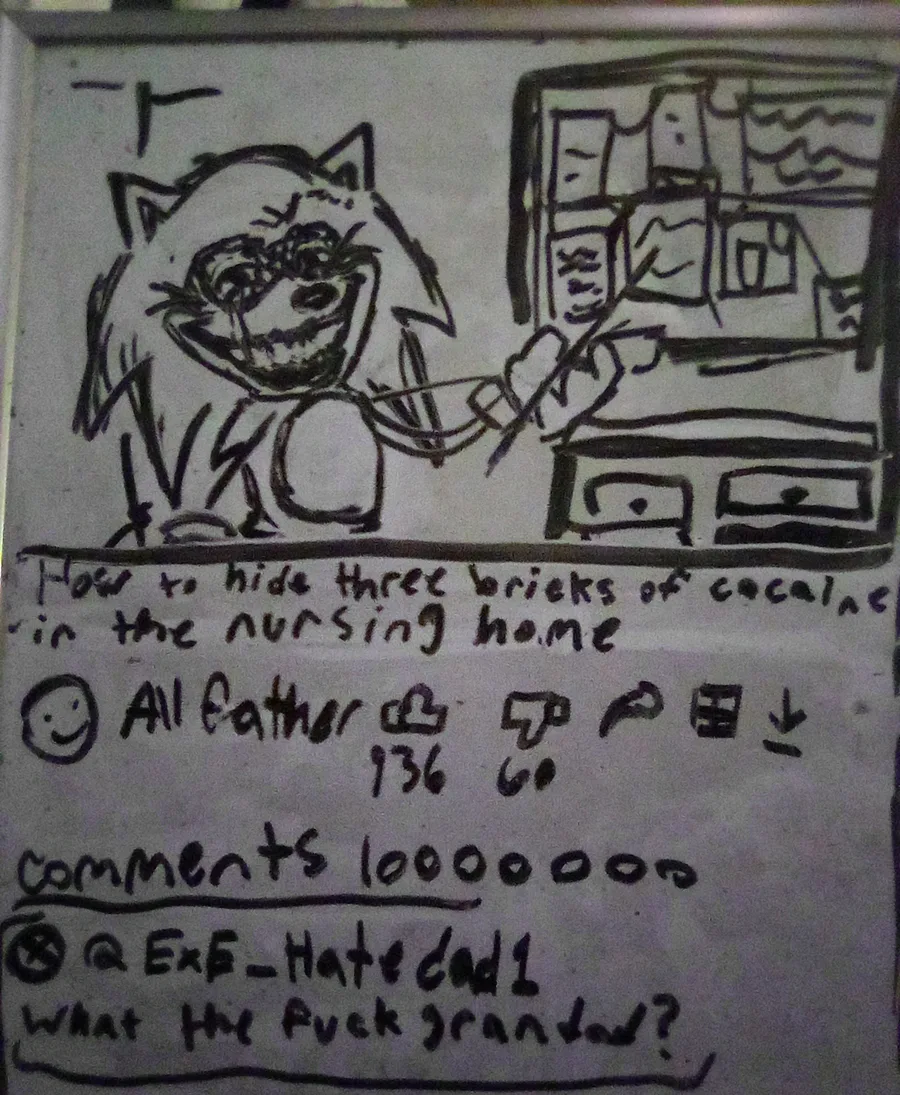 How to hide three bricks of cocaine
in the nursing home
All father
936 60
comments 10000000
@ExE_Hatedad1
What the fuck grandad?